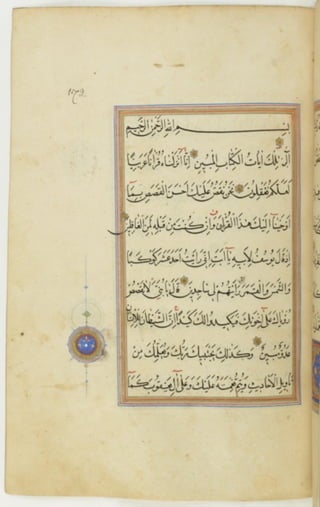 بسم الله الرحمن الرحيم
الر تلك ايات الكتاب المبين انا انزلناه قرانا عربيا
لعلكم تعقلون نحن نقص عليك احسن القصص بما
اوحينا اليك هذا القران وان كنت من قبله لمن الغافلين
اذ قال يوسف لابيه يا ابت اني رايت احد عشر كوكبا
والشمس والقمر رايتهم لي ساجدين قال يا بني لا تقصص
رؤياك على اخوتك فيكيدوا لك كيدا ان الشيطان للانسان
عدو مبين وكذلك يجتبيك ربك ويعلمك من
تاويل الاحاديث ويتم نعمته عليك وعلى ال يعقوب كما